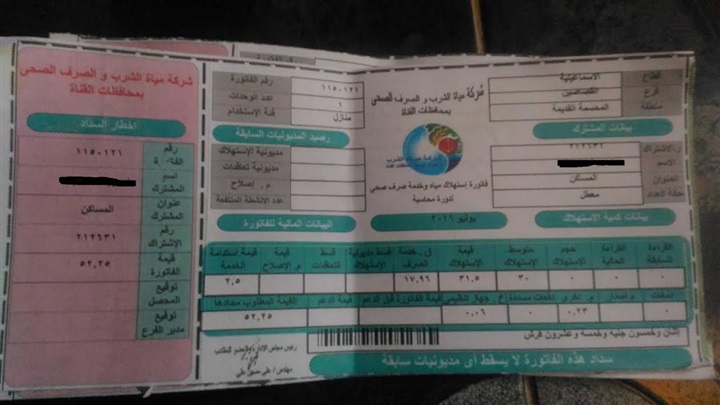 شركة مياة الشرب و الصرف الصحى
بمحافظات القناة
اخطار السداد
رقم الفاتورة
١١٥٠١٢١
اسم المشترك
عنوان المشترك
المساكن
رقم الإشتراك
٢١٢٦٣١
قيمة الفاتورة
٥٢,٢٥
توقيع المحصل
توقيع مدير الفرع
رقم الفاتورة
١١٥٠١٢١
عدد الوحدات
١
فئة الإستخدام
منازل
رصيد المديونيات السابقة
مديونية الإستهلاك
مديونية تعاقدات
م . إصلاح
عدد الانشطة المنتفعة
البيانات المالية للفاتورة
شركة مياة الشرب و الصرف الصحى
بمحافظات القناة
فاتورة إستهلاك مياه وخدمة صرف صحى
لدورة محاسبة
يونيو ٢٠١٦
قطاع
الاسماعيلية
فرع
القصاصين
منطقة
المحسمة القديمة
بيانات المشترك
ر.الاشتراك
٢١٢٦٣١
الاسم
العنوان
المساكن
حالة العداد
معطل
بيانات كمية الاستهلاك
القراءة السابقة
القراءة الحالية
حجم الإستهلاك
متوسط الإستهلاك
قيمة الإستهلاك
ق. خدمة الصرف
قسط مديونية الإستهلاك
قسط التعاقدات
قيمة م الإصلاح
قيمة استدامة الخدمة
٠ ٠ ٠ ٣٠ ٣١,٥ ١٧,٩٦ ٢,٥
دمغات
م . اصدار
م . اخرى
دفعات مسددة
ع . جهاز التنظيمى
قيمة الفاتورة قبل الدعم
قيمة الدعم
القيمة المطلوب سدادها
٠ ٠,٢٣ ٠ ٠,٠٦ ٥٢,٢٥
إثنان وخمسون جنيه وخمسه وعشرون قرش
رئيس مجلس الإدارة والعضو المنتدب
سداد هذه الفاتورة لا يسقط اى مديونيات سابقة